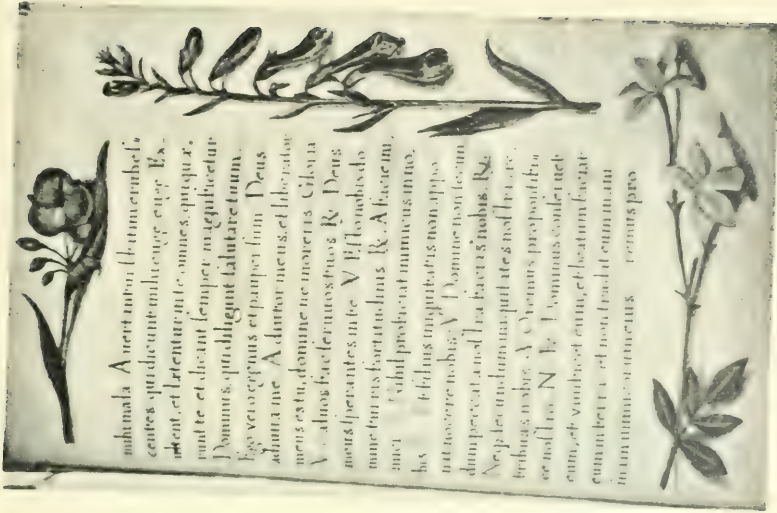 mihi mala Avertantur statim erubes
centes qui dicunt mihi euge euge Ex
ultent, et lætentur in te omnes, qui quæ
runt te et dicant semper magnificetur
Dominus, qui diligunt salutare tuum.
Ego vero egenus et pauper sum Deus
adiuva me Adiutor meus, et liberator
meus es tu, domine ne moreris Gloria
V Salvos fac servos tuos R Deus
meus sperantes in te V Esto nobis do
mine turris fortitudinis R A facie ini
mici Nihil proficiat inimicus in no
bis et filius iniquitatis non appo
nat nocere nobis V Domine non secun
dum peccata nostra facias nobis R
Neque secundum iniquitates nostras re
tribuas nobis V Oremus pro pontifi
ce nostro N R Dominus conservet
eum, et vivificet eum, et beatum faciat
eum in terra et non tradat eum in ani
mam inimicorum eius remus pro